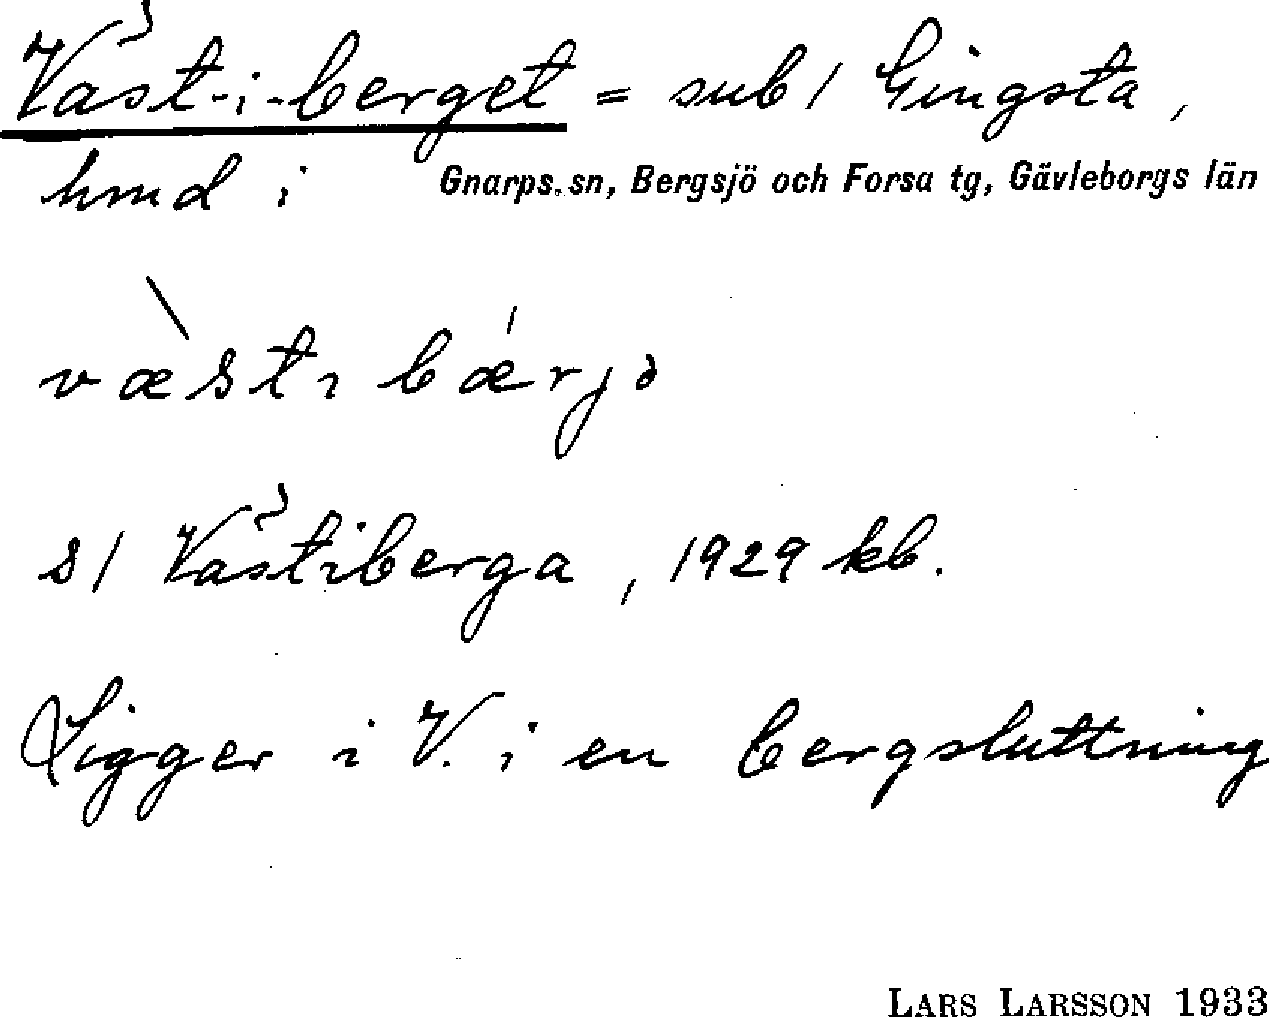 Väst-i-berget = sub / Gingsta,
hmd i Gnarps. sn, Bergsjö och Forsa tg, Gävleborgs län
væ̀stı bǽrjə
s/ Västiberga, 1929 kb.
Ligger i V. i en bergsluttning
LARS LARSSON 1933